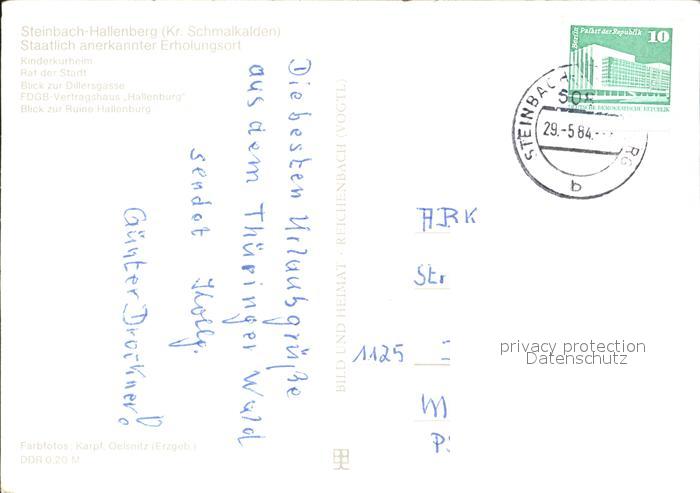 Steinbach-Hallenberg (Kr. Schmalkalden)
Staatlich anerkannter Erholungsort
Kinderkurheim
Rat der Stadt
Blick zur Dillersgasse
FDGB-Vertragshaus „Hallenburg"
Blick zur Ruine Hallenburg
Die besten Urlaubsgrüße
aus dem Thüringer Wald
sendet Kollg.
Günter
BILD UND HEIMAT · REICHENBACH (VOGTL)
Berlin Palast der Republik 10
DEUTSCHE DEMOKRATISCHE REPUBLIK
STEINBACH-
29.-5 84.-
b
ABK
Str
1125
M
P
privacy protection
Datenschutz
Farbfotos: Karpf, Oelsnitz (Erzgeb.)
DDR 0,20 M